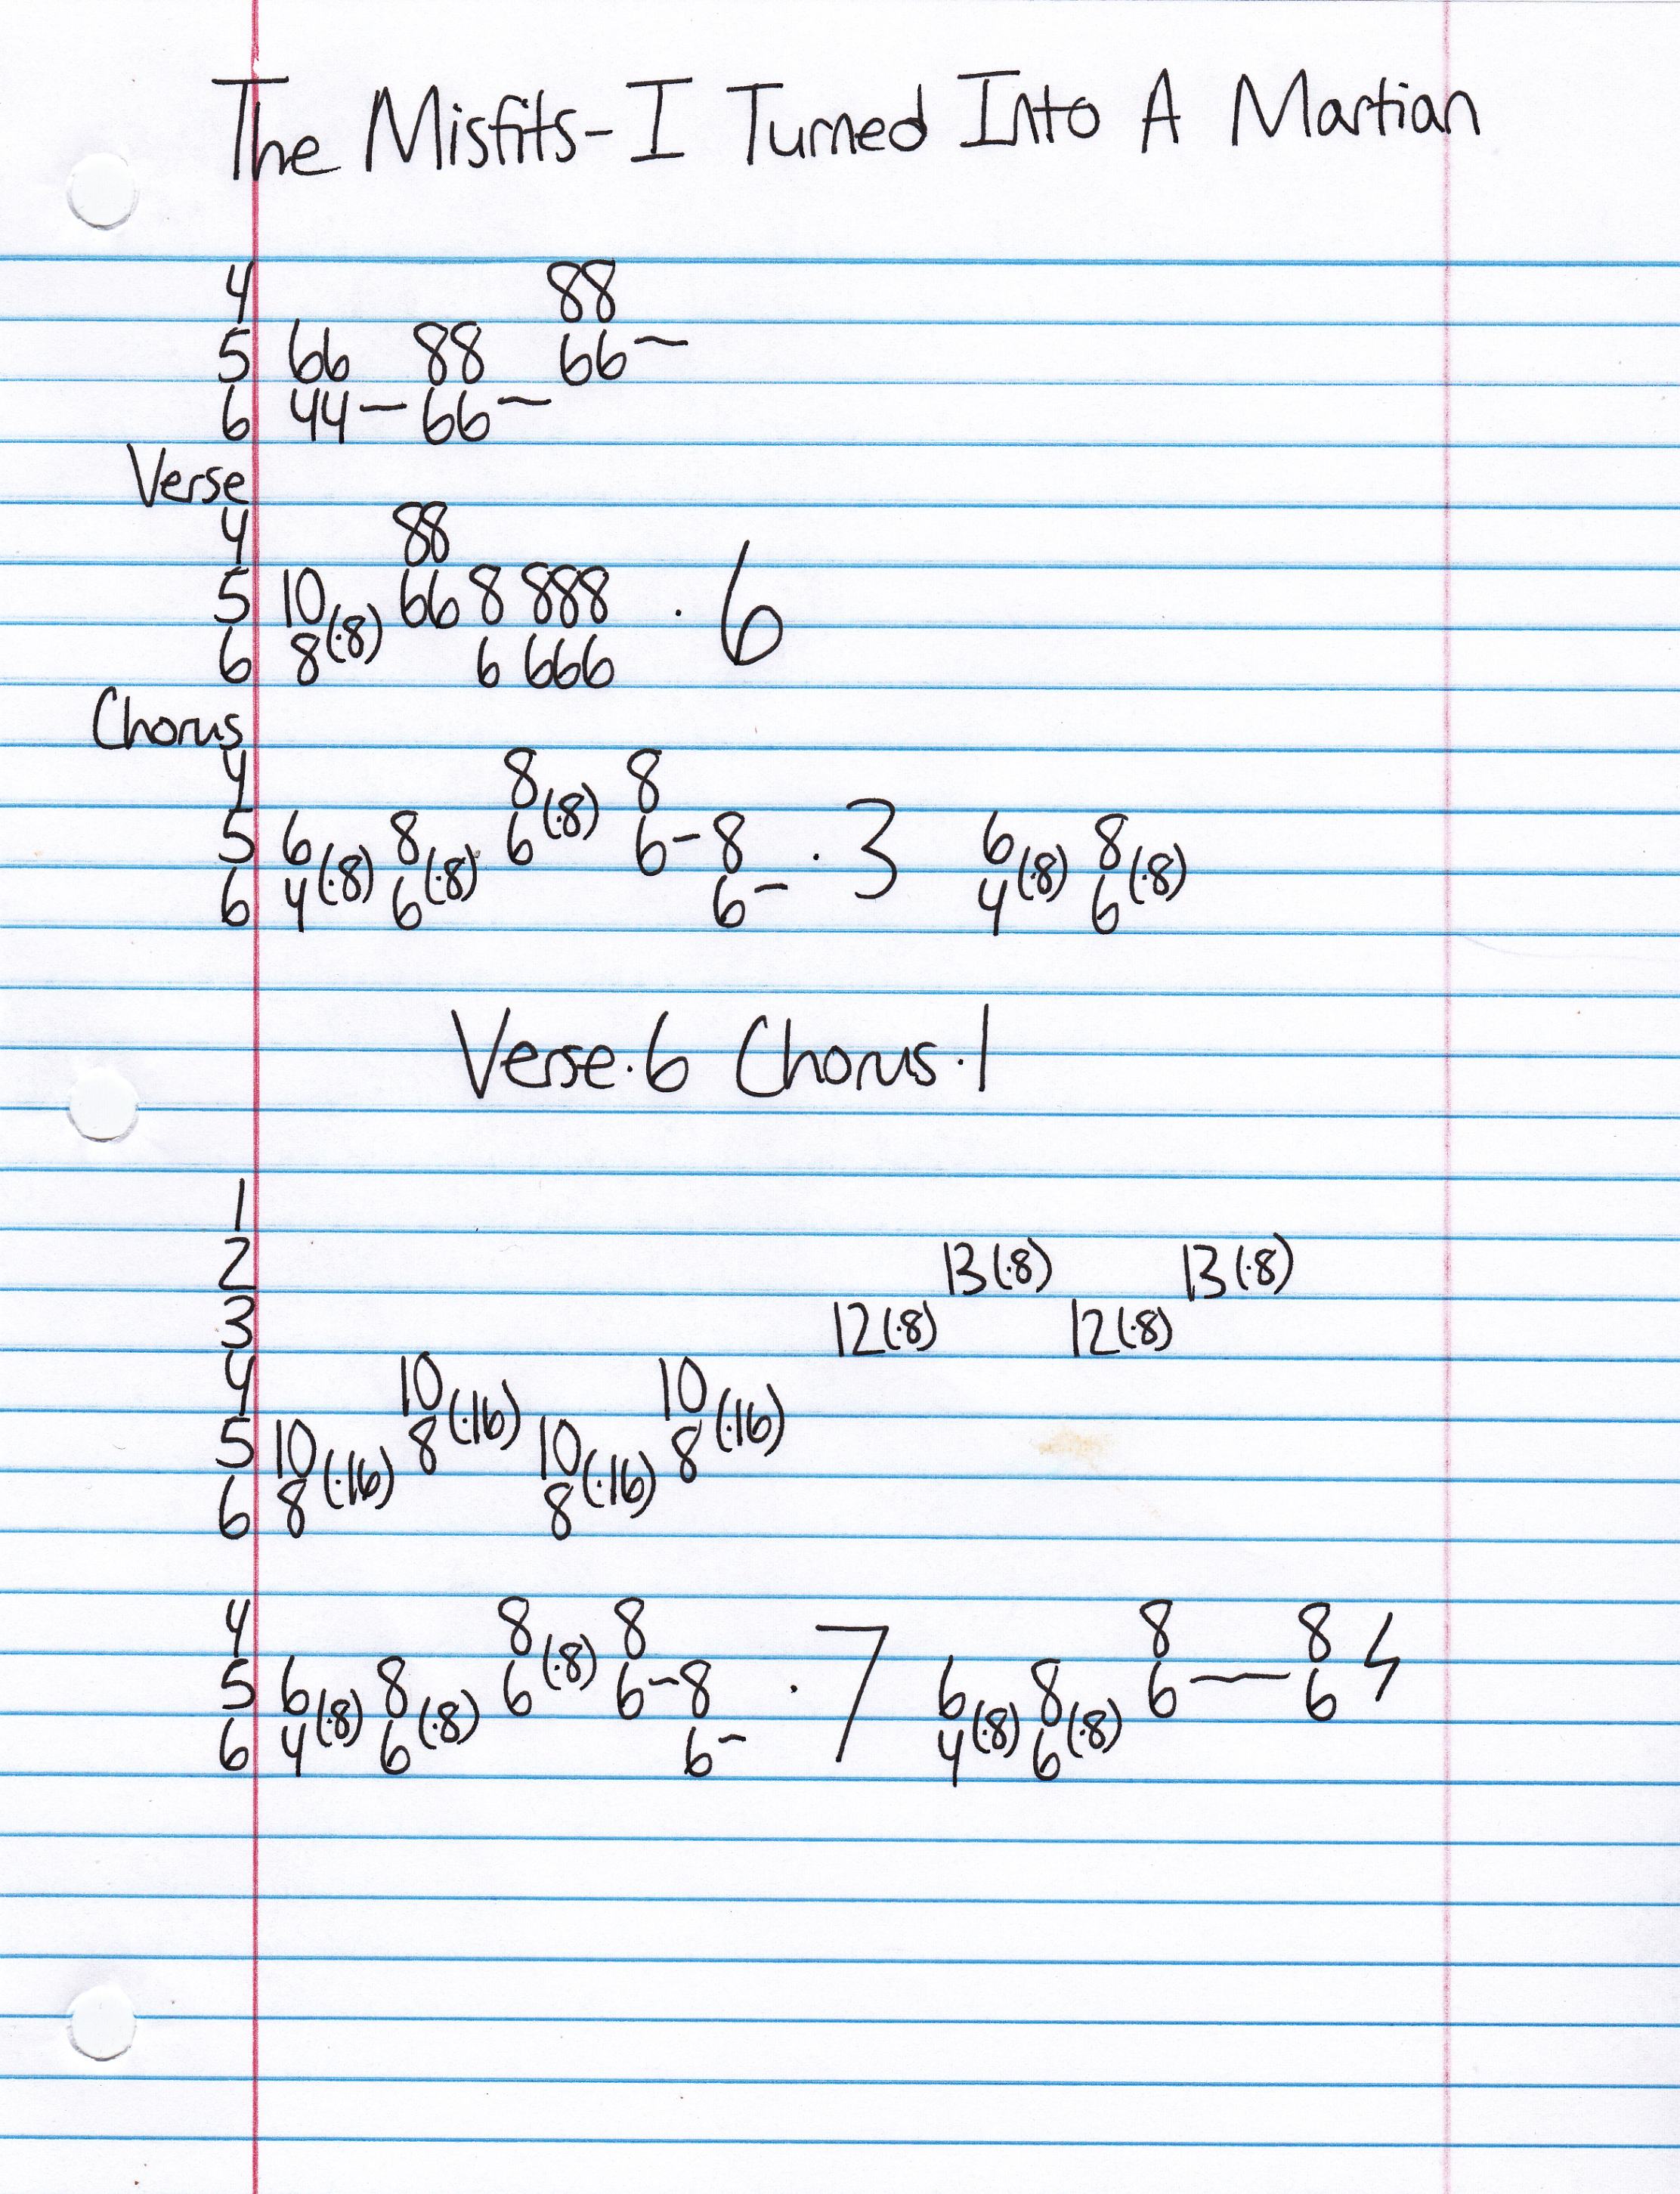 The Misfits- I Turned Into A Martian
4 88
5 66 88 66 –
6 44 – 66 –
Verse
4 88
5 10 66 8 888 · 6
6 8 (·8) 6 666
Chorus
4 8 (·8) 8
5 6 8 6 6 – 8 · 3 6 8
6 4 (·8) 6 (·8) 6 – 4 (·8) 6 (·8)
Verse·6 Chorus·1
1
2 13(·8) 13(·8)
3 12(·8) 12(·8)
4 10 10
5 10 8 (·16) 10 8 (·16)
6 8 (·16) 8 (·16)
4 8 8 8 8
5 6 8 6 (·8) 6 – 8 · 7 6 8 6 — 6
6 4 (·8) 6 (·8) 6 – 4 (·8) 6 (·8)